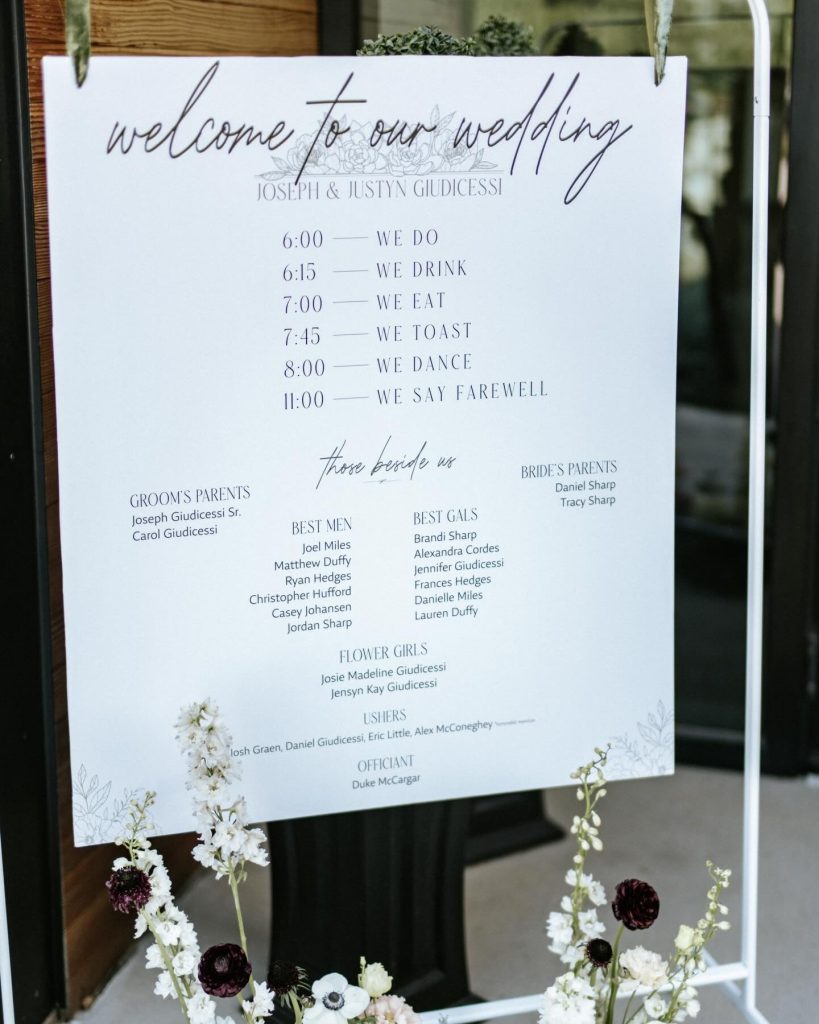 welcome to our wedding
JOSEPH & JUSTYN GIUDICESSI
6:00 — WE DO
6:15 — WE DRINK
7:00 — WE EAT
7:45 — WE TOAST
8:00 — WE DANCE
11:00 — WE SAY FAREWELL
those beside us
GROOM'S PARENTS
Joseph Giudicessi Sr.
Carol Giudicessi
BRIDE'S PARENTS
Daniel Sharp
Tracy Sharp
BEST MEN
Joel Miles
Matthew Duffy
Ryan Hedges
Christopher Hufford
Casey Johansen
Jordan Sharp
BEST GALS
Brandi Sharp
Alexandra Cordes
Jennifer Giudicessi
Frances Hedges
Danielle Miles
Lauren Duffy
FLOWER GIRLS
Josie Madeline Giudicessi
Jensyn Kay Giudicessi
USHERS
Josh Graen, Daniel Giudicessi, Eric Little, Alex McConeghey
OFFICIANT
Duke McCargar